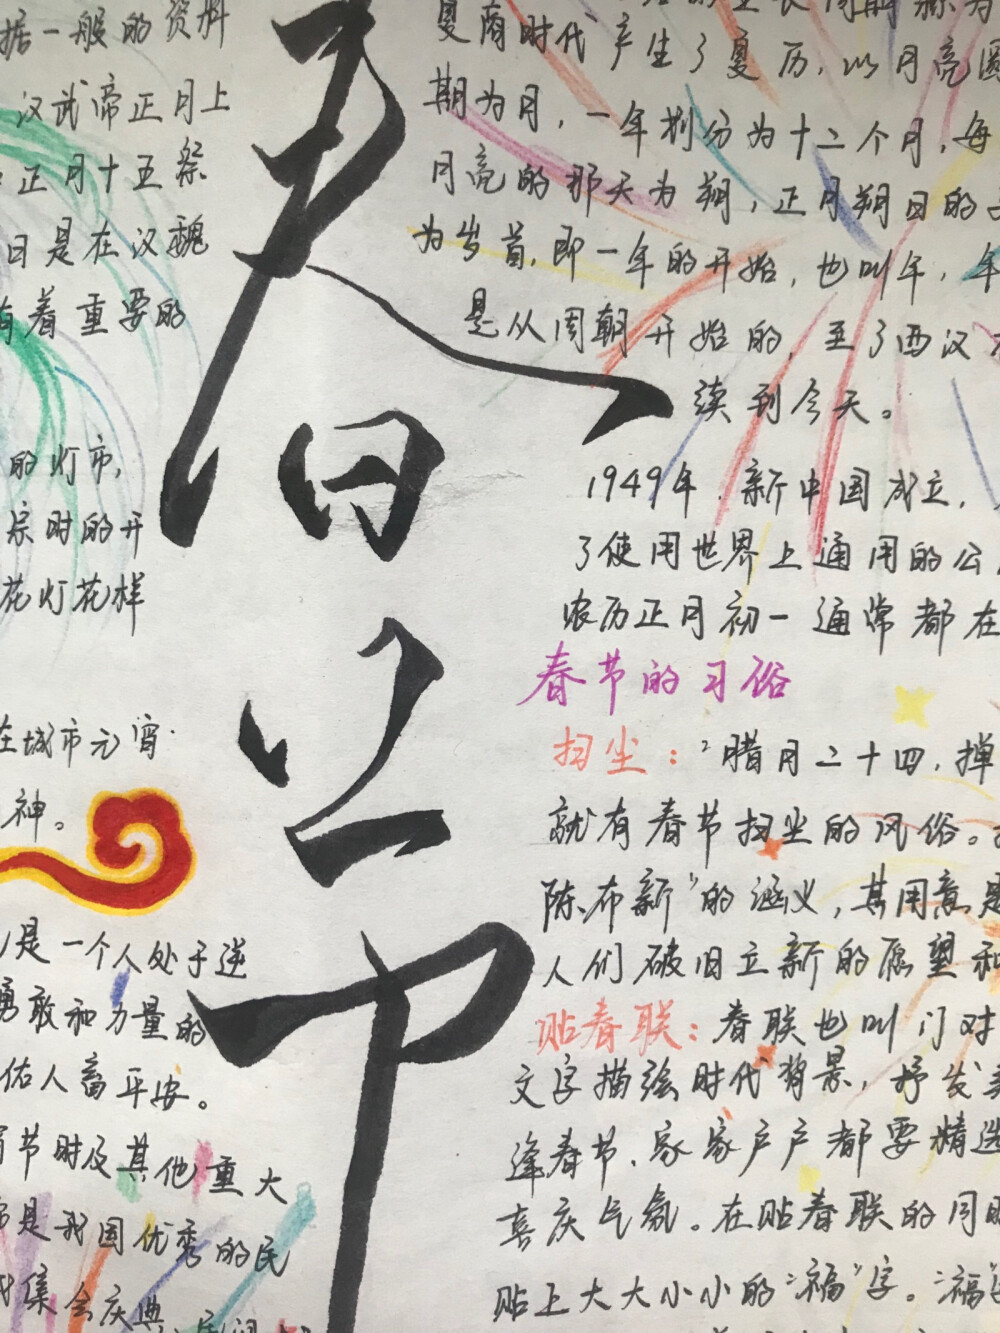 据一般的资料
汉武帝正月上
正月十五祭
日是在汉魏
有着重要的
的灯市,
宗时的开
花灯花样
在城市元宵
神。
是一个人处于逆
勇敢和力量的
佑人畜平安。
节时及其他重大
是我国优秀的民
集会庆典
春节
夏商时代产生了夏历,以月亮圆
期为月,一年划分为十二个月,每
月亮的那天为朔,正月朔日的
为岁首,即一年的开始,也叫年,年
是从周朝开始的,至了西汉
续到今天。
1949年,新中国成立,
了使用世界上通用的公
农历正月初一通常都在
春节的习俗
扫尘:"腊月二十四,掸
就有春节扫尘的风俗。
陈布新"的涵义,其用意是
人们破旧立新的愿望和
贴春联:春联也叫门对
文字描绘时代背景,抒发美
逢春节,家家户户都要精选
喜庆气氛。在贴春联的同时
贴上大大小小的"福"字。"福"字